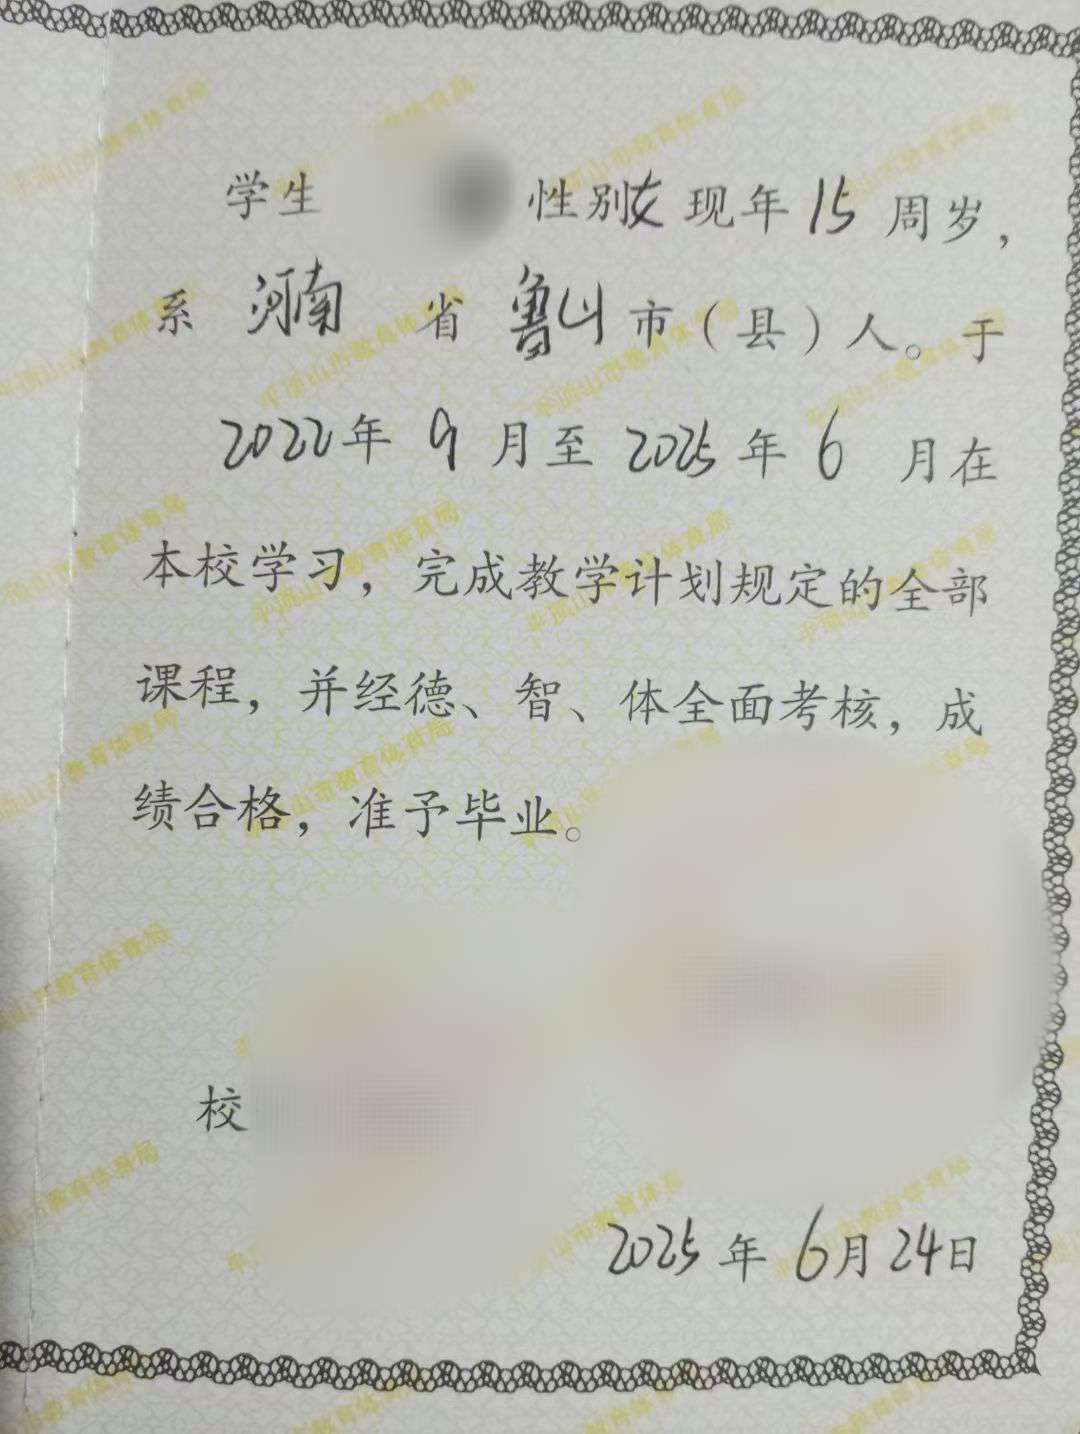 学生 性别女 现年 15 周岁，
系 河南 省 鲁山 市（县）人。于
2022年 9 月至 2025 年 6 月在
本校学习，完成教学计划规定的全部
课程，并经德、智、体全面考核，成
绩合格，准予毕业。
校
2025 年 6月 24日
平顶山市教育体育局